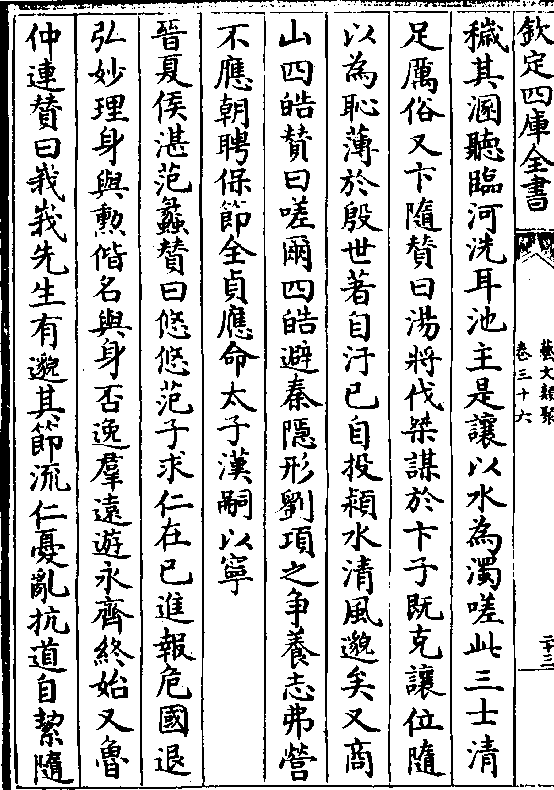 欽定四庫全書
藝文類聚
卷三十六
二十三
穢其溷聽臨河洗耳池主是讓以水為濁嗟此三士清
足厲俗又卞隨賛曰湯將伐桀謀於卞子既克讓位隨
以為恥薄於殷世著自汙已自投潁水清風邈矣又商
山四皓賛曰嗟爾四皓避秦隱形劉項之争養志弗營
不應朝聘保節全貞應命太子漢嗣以寧
晉夏侯湛范蠡賛曰悠悠范子求仁在已進報危國退
弘妙理身與勲偕名與身否逸羣遠遊永齊終始又魯
仲連賛曰峩峩先生有邈其節流仁憂亂抗道自絜隨